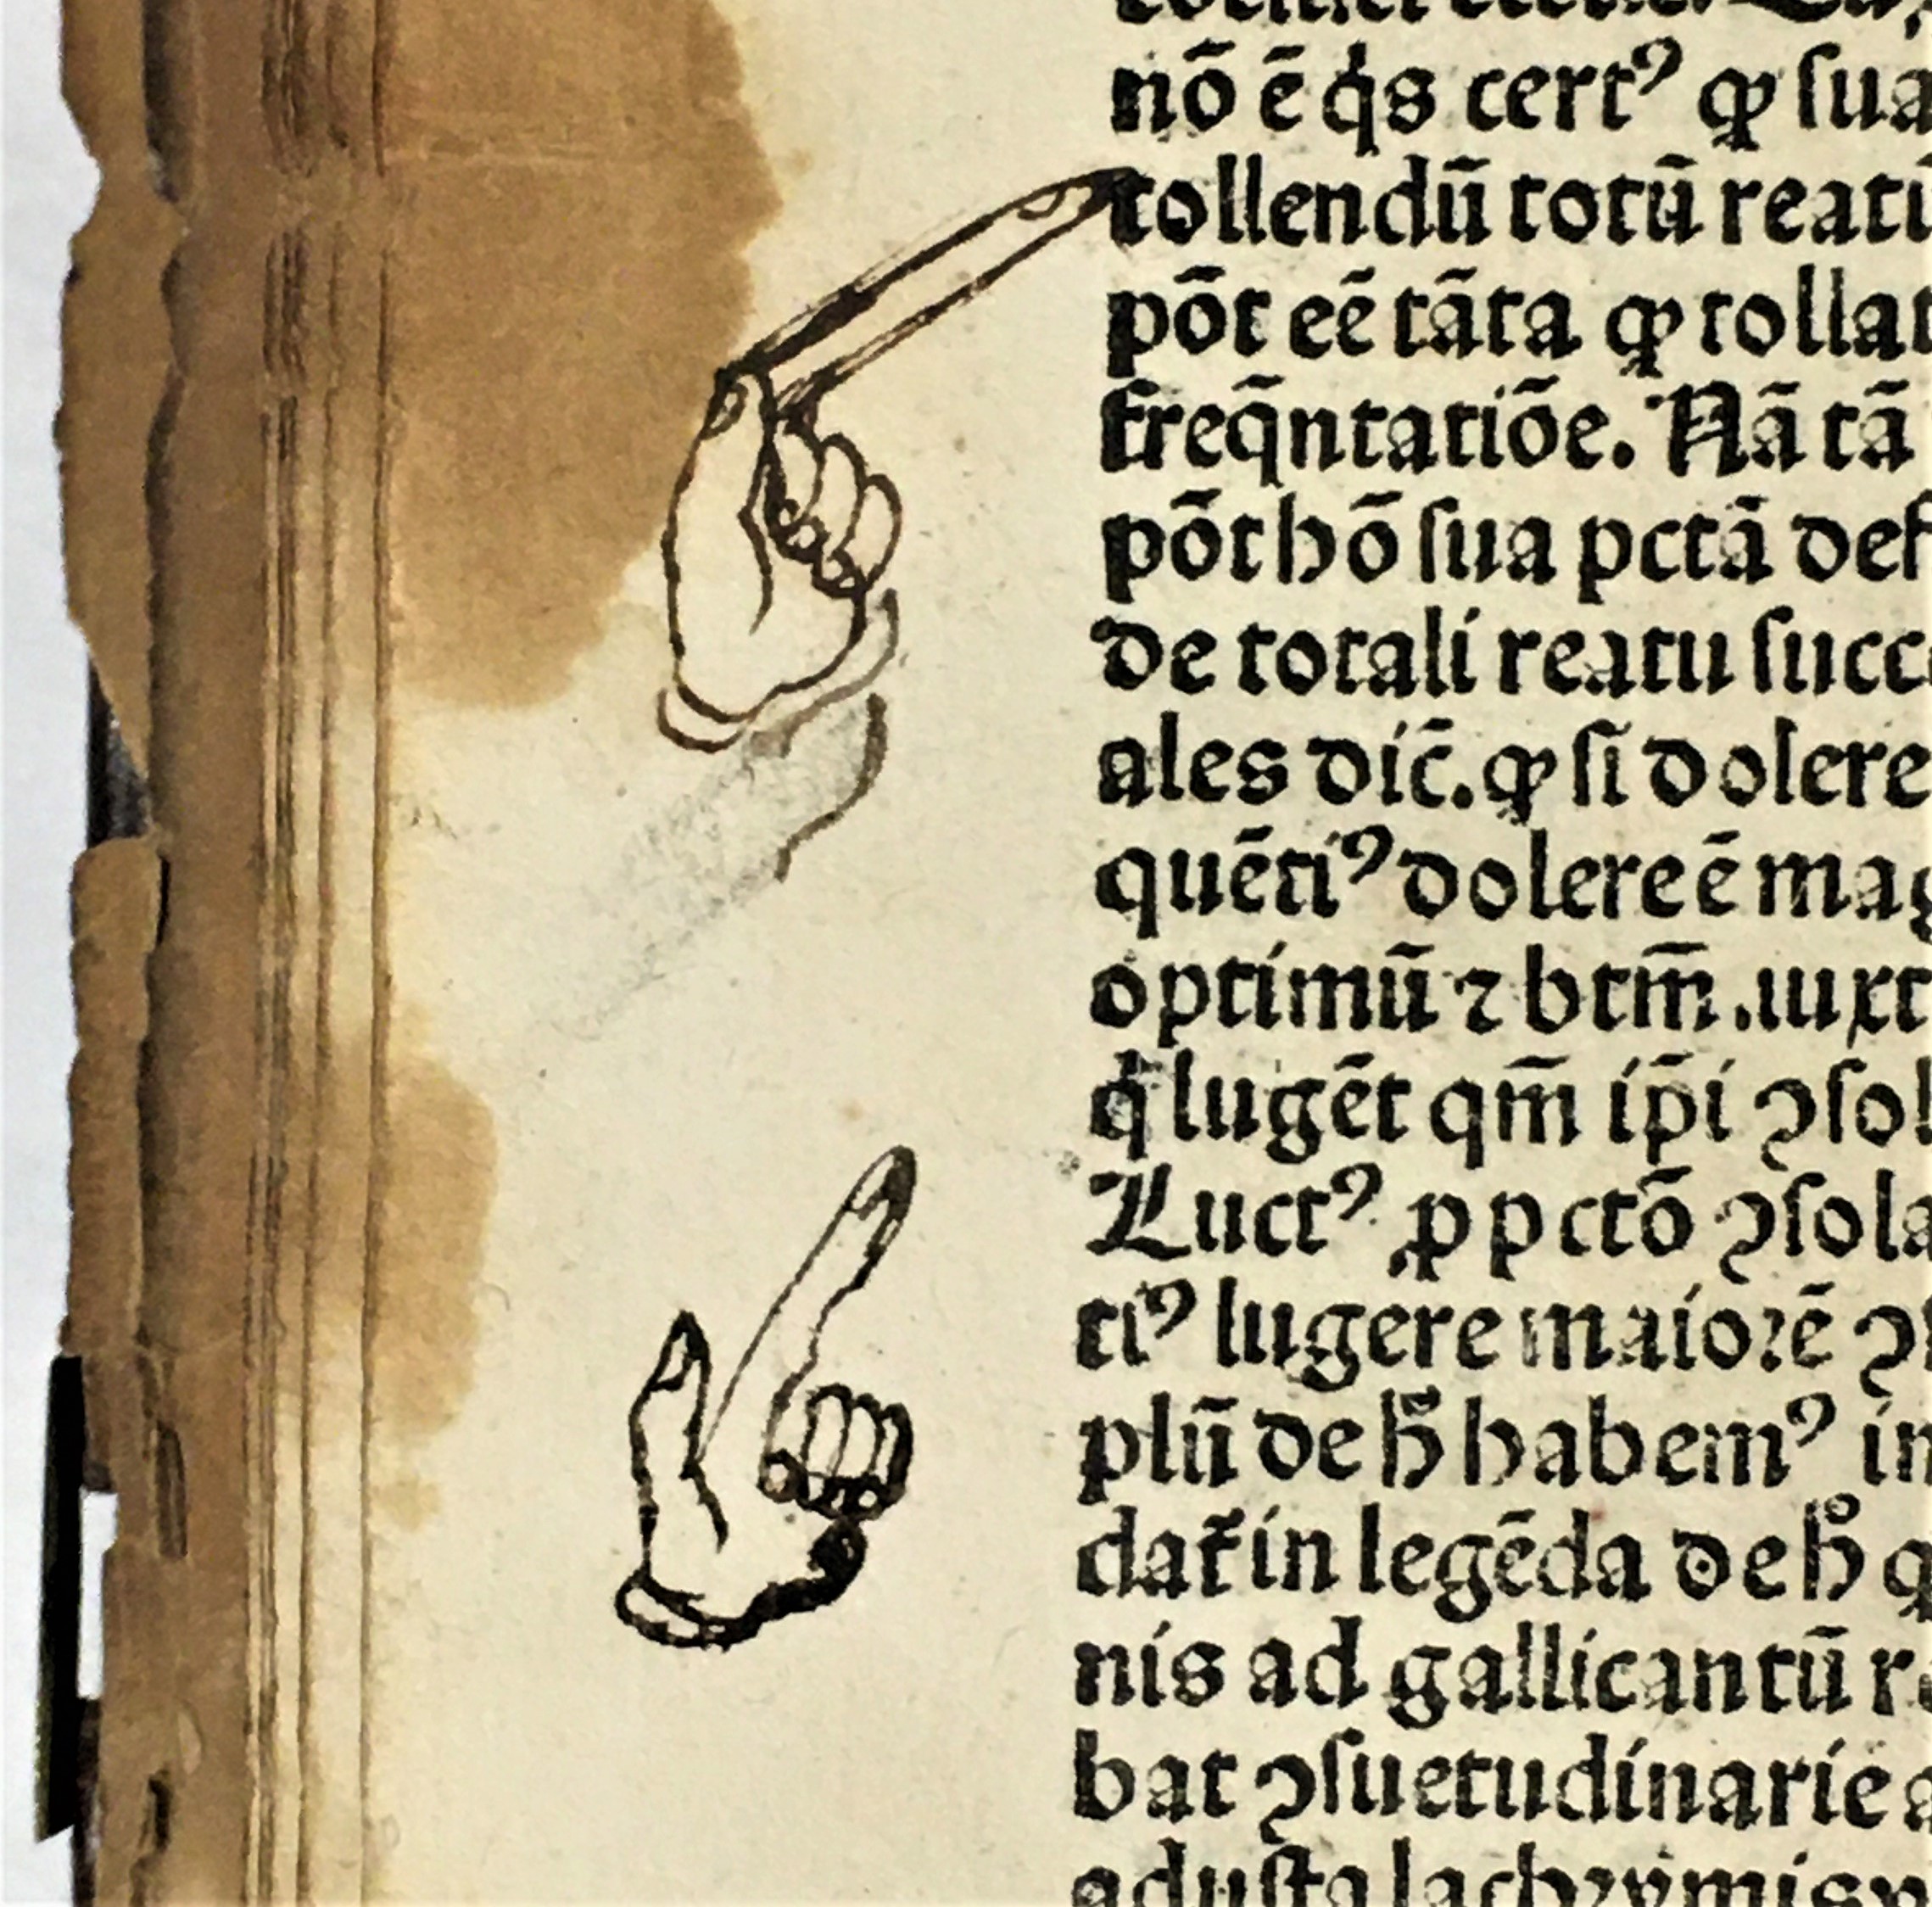 nō ē q̇s certꝰ ꝙ ſua
tollendū totū reati
pōt eē tāta ꝙ tollat
freq̄ntatiōe. Nā tā
pōt hō ſua pctā def
de totali reatu ſucc
ales dic̄. ꝙ ſi dolere
quētiꝰ dolere ē mag
optimū ⁊ btm̄. iuxt
q̇ lugēt qm̄ ip̄i ꝯſol
Luctꝰ ꝓ pctō ꝯſola
tiꝰ lugere maiorē ꝯ
plū de hͦ habemꝰ in
dat in legēda de hͦ q
nis ad gallicantū
bat ꝯſuetudinarie a
aduſta lachrymis